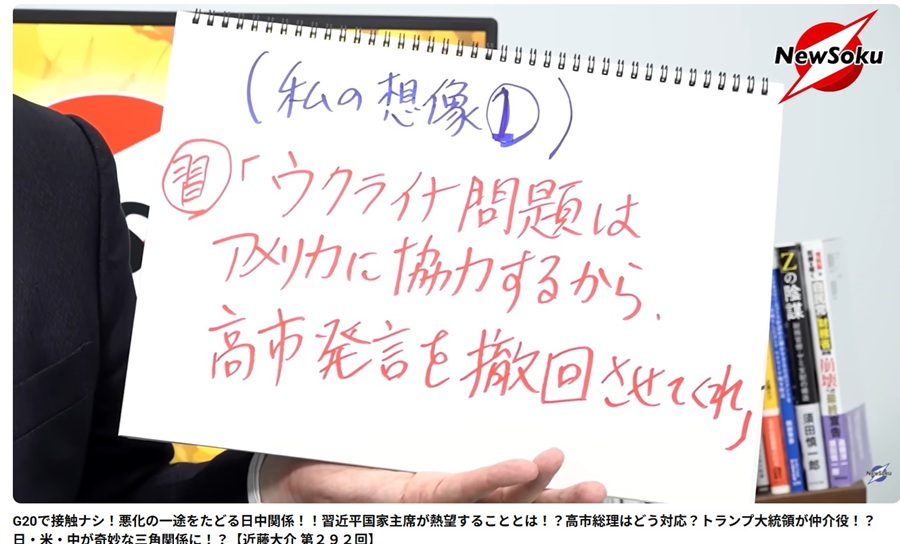 NewSoku
(私の想像①)
習「ウクライナ問題は
アメリカに協力するから、
高市発言を撤回させてくれ」
Zの陰謀
須田慎一郎
崩壊
最終宣告
NewSoku
G20で接触ナシ！悪化の一途をたどる日中関係！！習近平国家主席が熱望することとは！？高市総理はどう対応？トランプ大統領が仲介役！？
日・米・中が奇妙な三角関係に！？【近藤大介 第２９２回】